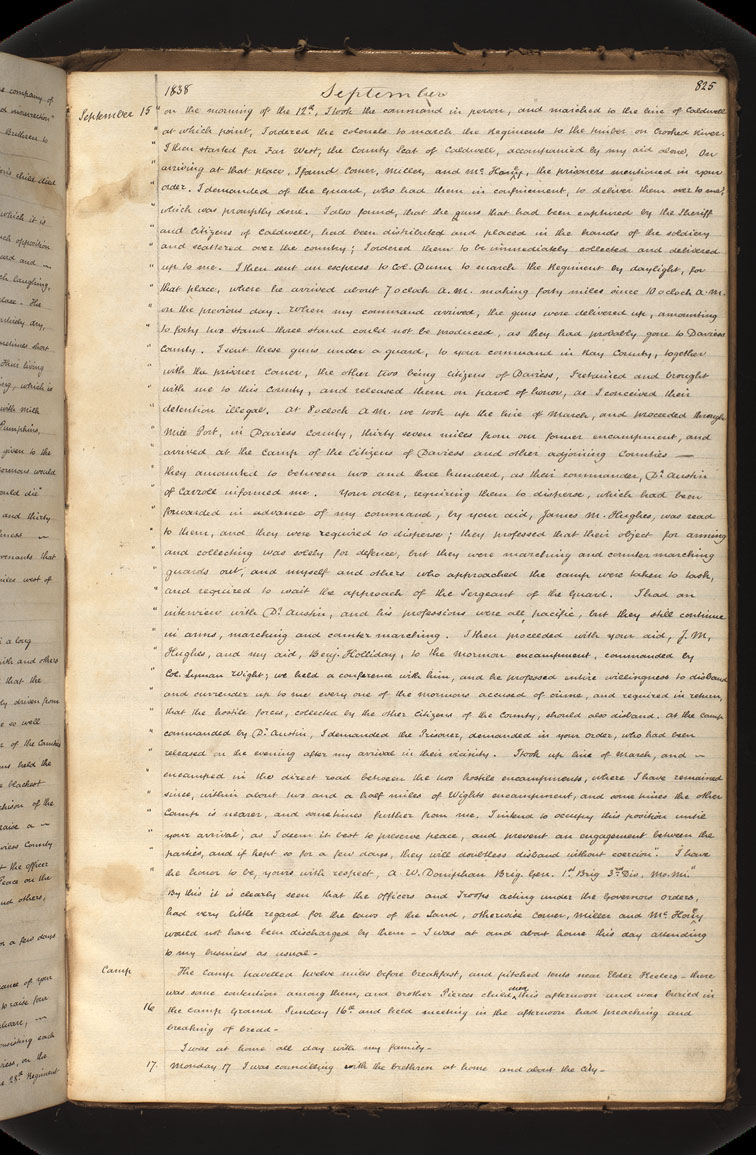 1838 September 825
September 15 " on the morning of the 12th, I took the command in person, and marched to the line of Caldwell
at which point, I ordered the colonels to march the Regiments to the timber on Crooked River.
" I then started for Far West, the County Seat of Caldwell, accompanied by my aid alone. On
" arriving at that place, I found Comer, Miller, and Mc. Honey, the prisoners mentioned in your
" order. I demanded of the Guard, who had them in confinement, to deliver them over to me,
" which was promptly done. I also found, that the guns that had been captured by the Sheriff
" and Citizens of Caldwell, had been distributed and placed in the hands of the soldiery
" and scattered over the country; I ordered them to be immediately collected and delivered
" up to me. I then sent an express to Col. Dunn to march the Regiment by daylight, for
" that place, where he arrived about 7 oclock A.M. making forty miles since 10 oclock A.M.
" on the previous day. When my command arrived, the guns were delivered up, amounting
" to forty two stand three stand could not be produced, as they had probably gone to Daviess
" County. I sent these guns under a guard, to your command in Ray County, together
" with the prisoner Comer, the other two being citizens of Daviess, I retained and brought
" with me to this County, and released them on parol of honor, as I conceived their
" detention illegal. At 8 oclock A.M. we took up the line of March, and proceeded through
" Mill Port, in Daviess County, thirty seven miles from our former encampment, and
" arrived at the camp of the Citizens of Daviess and other adjoining Counties —
" they amounted to between two and three hundred, as their commander, Dr. Austin
" of Carroll informed me. Your order, requiring them to disperse, which had been
" forwarded in advance of my command, by your aid, James M. Hughes, was read
" to them, and they were required to disperse; they professed that their object for arming
" and collecting was solely for defence, but they were marching and counter marching
" guards out; and myself and others who approached the camp were taken to task,
" and required to wait the approach of the Sergeant of the Guard. I had an
" interview with Dr. Austin, and his professions were all pacific, but they still continue
" in arms, marching and counter marching. I then proceeded with your aid, J. M.
" Hughes, and my aid, Benj. Holliday, to the Mormon encampment, commanded by
" Col. Lyman Wight; we held a conference with him, and he professed entire willingness to disband
" and surrender up to me every one of the Mormons accused of crime, and required in return,
" that the hostile forces, collected by the other citizens of the County, should also disband. At the camp
" commanded by Dr. Austin, I demanded the Prisoner, demanded in your order, who had been
" released on the evening after my arrival in their vicinity. I took up line of march, and —
" encamped in the direct road between the two hostile encampments, where I have remained
" since, within about two and a half miles of Wights encampment, and sometimes the other
" Camp is nearer, and sometimes further from me. I intend to occupy this position until
" your arrival, as I deem it best to preserve peace, and prevent an engagement between the
" parties, and if kept so for a few days, they will doubtless disband without coercion. I have
" the honor to be, yours with respect, A. W. Doniphan Brig. Gen. 1st Brig 3rd Dis. Mo. Mi."
By this it is clearly seen that the officers and Troops acting under the Governors orders,
had very little regard for the laws of the Land, otherwise Comer, Miller and Mc. Honey
would not have been discharged by them – I was at and about home this day attending
to my business as usual –
Camp The Camp travelled twelve mills before breakfast, and pitched tents near Elder Keelers – there
was some contention among them, and brother Pierces child died this afternoon and was buried in
16 the Camp Ground Sunday 16th and held meeting in the afternoon had preaching and
breaking of bread –
I was at home all day with my family –
17. Monday 17 I was councilling with the brethren at home and about the city –